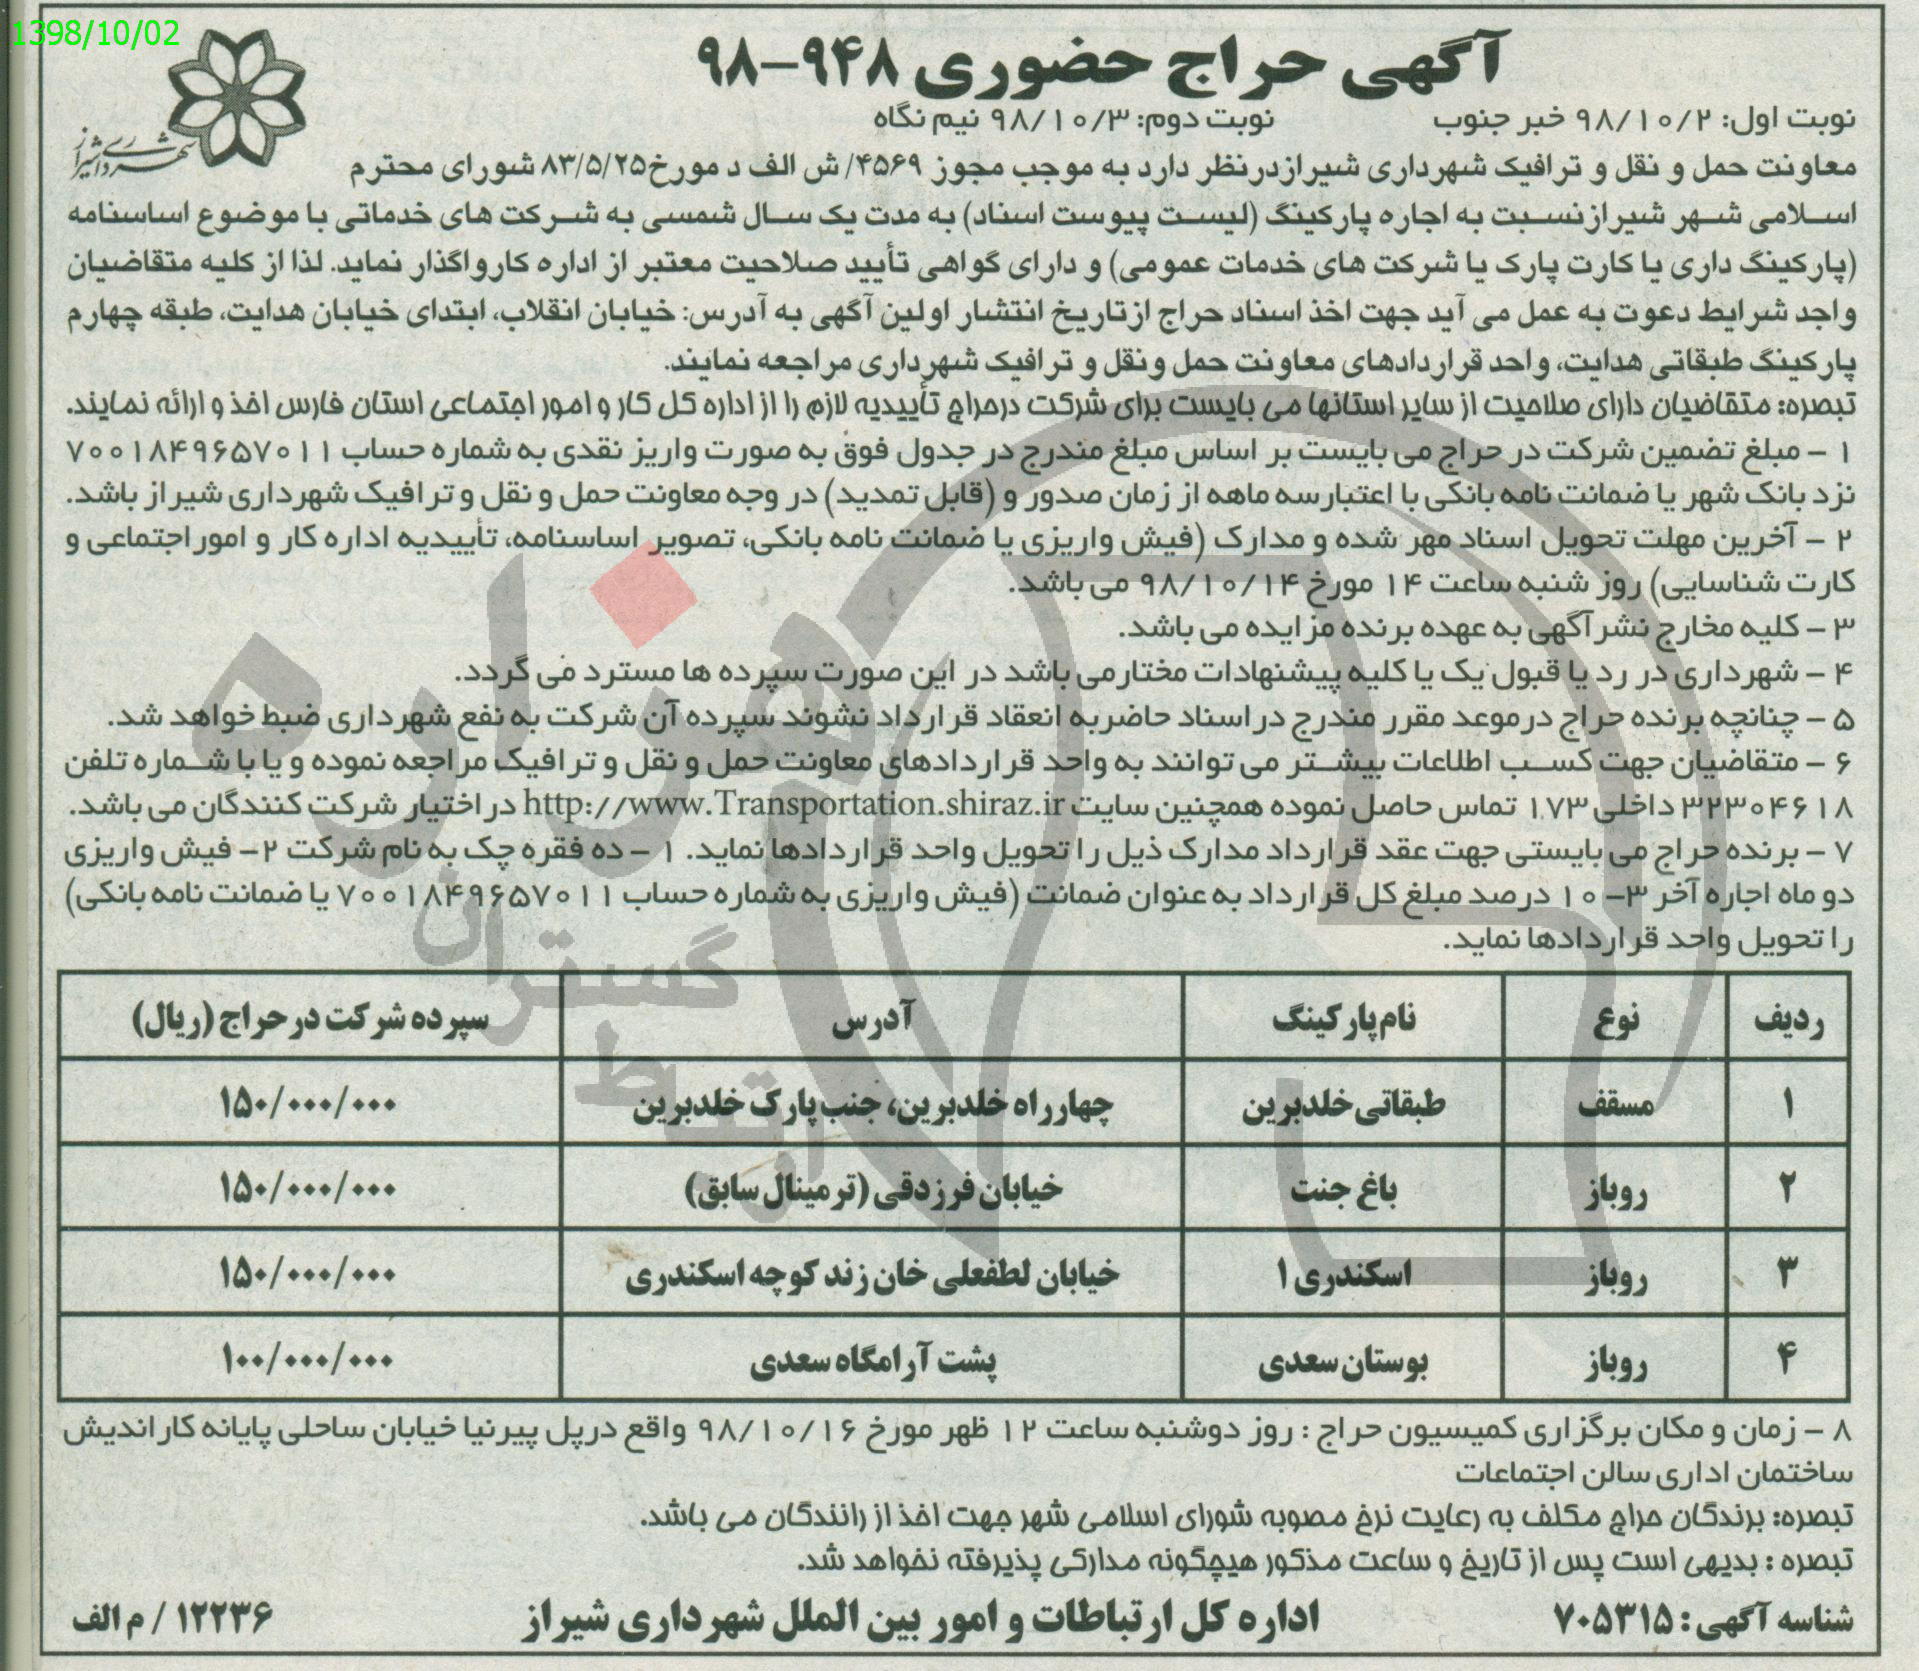 1398/10/02
آگهی حراج حضوری ۹۴۸-۹۸
نوبت اول: ۹۸/۱۰/۲ خبر جنوب نوبت دوم: ۹۸/۱۰/۳ نیم نگاه
شهرداری شیراز
معاونت حمل و نقل و ترافیک شهرداری شیراز درنظر دارد به موجب مجوز ۴۵۶۹/ ش الف د مورخ ۸۳/۵/۲۵ شورای محترم
اسلامی شهر شیراز نسبت به اجاره پارکینگ (لیست پیوست اسناد) به مدت یک سال شمسی به شرکت های خدماتی با موضوع اساسنامه
(پارکینگ داری یا کارت پارک یا شرکت های خدمات عمومی) و دارای گواهی تأیید صلاحیت معتبر از اداره کار واگذار نماید. لذا از کلیه متقاضیان
واجد شرایط دعوت به عمل می آید جهت اخذ اسناد حراج از تاریخ انتشار اولین آگهی به آدرس: خیابان انقلاب، ابتدای خیابان هدایت، طبقه چهارم
پارکینگ طبقاتی هدایت، واحد قراردادهای معاونت حمل ونقل و ترافیک شهرداری مراجعه نمایند.
تبصره: متقاضیان دارای صلاحیت از سایر استانها می بایست برای شرکت درحراج تأییدیه لازم را از اداره کل کار و امور اجتماعی استان فارس اخذ و ارائه نمایند.
۱ - مبلغ تضمین شرکت در حراج می بایست بر اساس مبلغ مندرج در جدول فوق به صورت واریز نقدی به شماره حساب ۷۰۰۱۸۴۹۶۵۷۰۱۱
نزد بانک شهر یا ضمانت نامه بانکی با اعتبار سه ماهه از زمان صدور و (قابل تمدید) در وجه معاونت حمل و نقل و ترافیک شهرداری شیراز باشد.
۲ - آخرین مهلت تحویل اسناد مهر شده و مدارک (فیش واریزی یا ضمانت نامه بانکی، تصویر اساسنامه، تأییدیه اداره کار و امور اجتماعی و
کارت شناسایی) روز شنبه ساعت ۱۴ مورخ ۹۸/۱۰/۱۴ می باشد.
۳ - کلیه مخارج نشر آگهی به عهده برنده مزایده می باشد.
۴ - شهرداری در رد یا قبول یک یا کلیه پیشنهادات مختار می باشد در این صورت سپرده ها مسترد می گردد.
۵ - چنانچه برنده حراج درموعد مقرر مندرج در اسناد حاضر به انعقاد قرارداد نشوند سپرده آن شرکت به نفع شهرداری ضبط خواهد شد.
۶ - متقاضیان جهت کسب اطلاعات بیشتر می توانند به واحد قراردادهای معاونت حمل و نقل و ترافیک مراجعه نموده و یا با شماره تلفن
۳۲۳۰۴۶۱۸ داخلی ۱۷۳ تماس حاصل نموده همچنین سایت http://www.Transportation.shiraz.ir در اختیار شرکت کنندگان می باشد.
۷ - برنده حراج می بایستی جهت عقد قرارداد مدارک ذیل را تحویل واحد قراردادها نماید. ۱ - ده فقره چک به نام شرکت ۲- فیش واریزی
دو ماه اجاره آخر ۳- ۱۰ درصد مبلغ کل قرارداد به عنوان ضمانت (فیش واریزی به شماره حساب ۷۰۰۱۸۴۹۶۵۷۰۱۱ یا ضمانت نامه بانکی)
را تحویل واحد قراردادها نماید.
ردیف نوع نام پارکینگ آدرس سپرده شرکت در حراج (ریال)
۱ مسقف طبقاتی خلدبرین چهارراه خلدبرین، جنب پارک خلدبرین ۱۵۰/۰۰۰/۰۰۰
۲ روباز باغ جنت خیابان فرزدقی (ترمینال سابق) ۱۵۰/۰۰۰/۰۰۰
۳ روباز اسکندری ۱ خیابان لطفعلی خان زند کوچه اسکندری ۱۵۰/۰۰۰/۰۰۰
۴ روباز بوستان سعدی پشت آرامگاه سعدی ۱۰۰/۰۰۰/۰۰۰
۸ - زمان و مکان برگزاری کمیسیون حراج : روز دوشنبه ساعت ۱۲ ظهر مورخ ۹۸/۱۰/۱۶ واقع در پل پیرنیا خیابان ساحلی پایانه کاراندیش
ساختمان اداری سالن اجتماعات
تبصره: برندگان حراج مکلف به رعایت نرخ مصوبه شورای اسلامی شهر جهت اخذ از رانندگان می باشد.
تبصره : بدیهی است پس از تاریخ و ساعت مذکور هیچگونه مدارکی پذیرفته نخواهد شد.
شناسه آگهی: ۷۰۵۳۱۵ اداره کل ارتباطات و امور بین الملل شهرداری شیراز ۱۲۲۳۶ / م الف